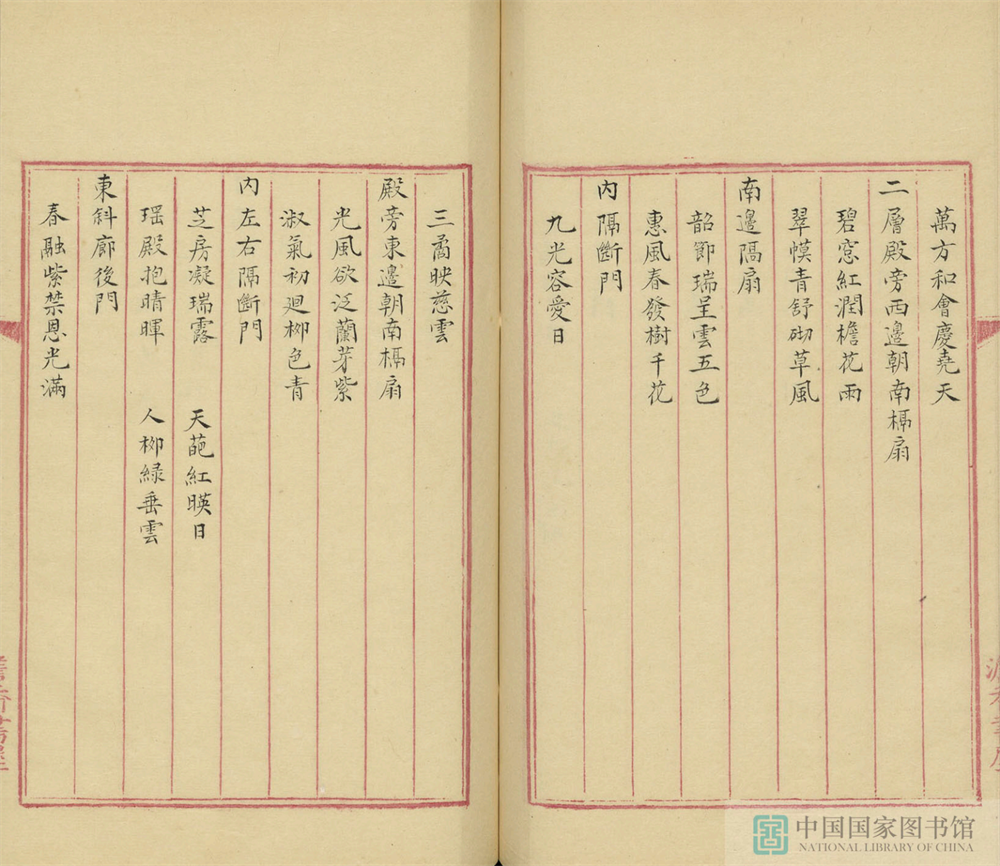 萬方和會慶堯天
二層殿旁西邊朝南槅扇
碧窓紅潤檐花雨
翠幙青舒砌草風
南邊隔扇
韶節瑞呈雲五色
惠風春發樹千花
內隔斷門
九光容愛日
三矞映慈雲
殿旁東邊朝南槅扇
光風欲泛蘭芽紫
淑氣初迴柳色青
內左右隔斷門
芝房凝瑞露 天葩紅暎日
瑶殿抱晴暉 人柳緑垂雲
東斜廊後門
春融紫禁恩光滿
中国国家图书馆
NATIONAL LIBRARY OF CHINA